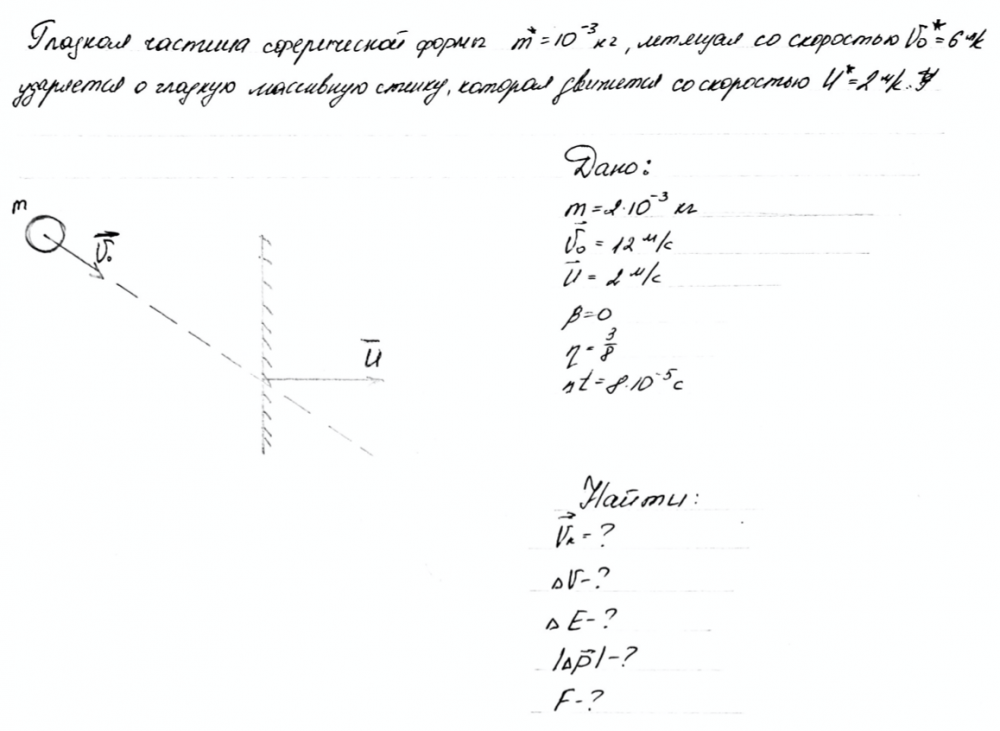 Гладкая частица сферической формы m*=10⁻³ кг, летящая со скоростью V₀*=6 м/с
ударяется о гладкую массивную стенку, которая движется со скоростью U*=2 м/с.
Дано:
m = 2·10⁻³ кг
V⃗₀ = 12 м/с
U̅ = 2 м/с
β=0
η = 3/8
Δt = 8·10⁻⁵ с
m
V⃗₀
U̅
Найти:
V⃗ₖ = ?
ΔV-?
ΔE-?
|Δp⃗|-?
F-?